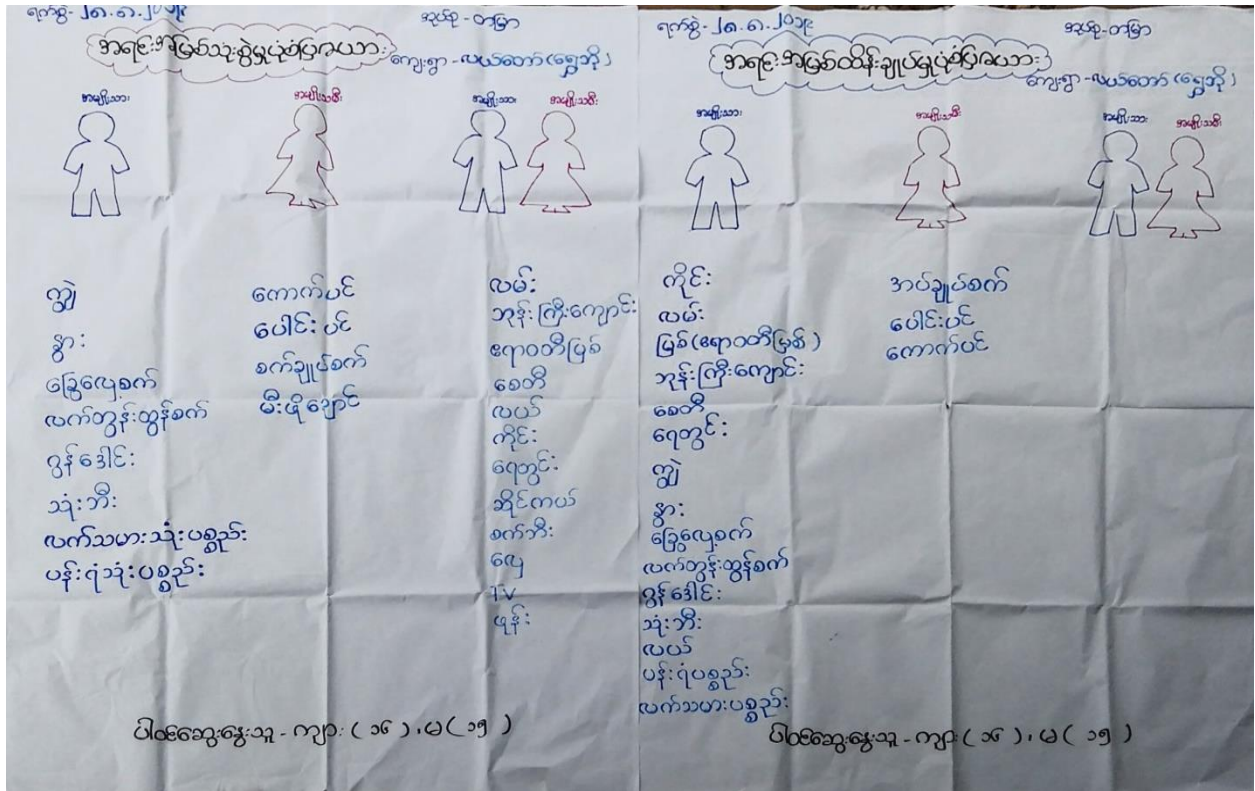 ရက်စွဲ- ၂၈.၈.၂၀၁၉
အုပ်စု - တမြာ
အရင်းအမြစ်သုံးစွဲမှုပုံစံပြဇယား
ကျေးရွာ - လယ်တော် (ရွှေဘို)
အမျိုးသား
အမျိုးသမီး
အမျိုးသား
အမျိုးသမီး
ကျွဲ
နွား
ခြွေလှေ့စက်
လက်တွန်းထွန်စက်
ဂွန်ဒေါင်း
သုံးဘီး
လက်သမားသုံးပစ္စည်း
ပန်းရံသုံးပစ္စည်း
ကောက်ပင်
ပေါင်းပင်
စက်ချုပ်စက်
မီးဖိုချောင်
လမ်း
ဘုန်းကြီးကျောင်း
ဧရာဝတီမြစ်
စေတီ
လယ်
ကိုင်း
ရေတွင်း
ဆိုင်ကယ်
စက်ဘီး
လှေ
TV
ဖုန်း
ပါဝင်ဆွေးနွေးသူ - ကျား ( ၁၆ ) ၊ မ ( ၁၅ )
ရက်စွဲ- ၂၈.၈.၂၀၁၉
အုပ်စု - တမြာ
အရင်းအမြစ်ထိန်းချုပ်မှုပုံစံပြဇယား
ကျေးရွာ - လယ်တော် (ရွှေဘို)
အမျိုးသား
အမျိုးသမီး
အမျိုးသား
အမျိုးသမီး
ကိုင်း
လမ်း
မြစ် (ဧရာဝတီမြစ်)
ဘုန်းကြီးကျောင်း
စေတီ
ရေတွင်း
ကျွဲ
နွား
ခြွေလှေ့စက်
လက်တွန်းထွန်စက်
ဂွန်ဒေါင်း
သုံးဘီး
လယ်
ပန်းရံပစ္စည်း
လက်သမားပစ္စည်း
အပ်ချုပ်စက်
ပေါင်းပင်
ကောက်ပင်
ပါဝင်ဆွေးနွေးသူ - ကျား ( ၁၆ ) ၊ မ ( ၁၅ )